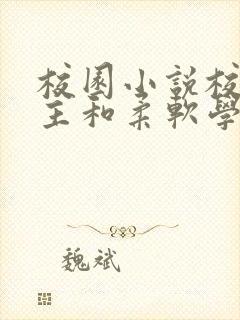 校園小說校
主和柔軟學
魏斌